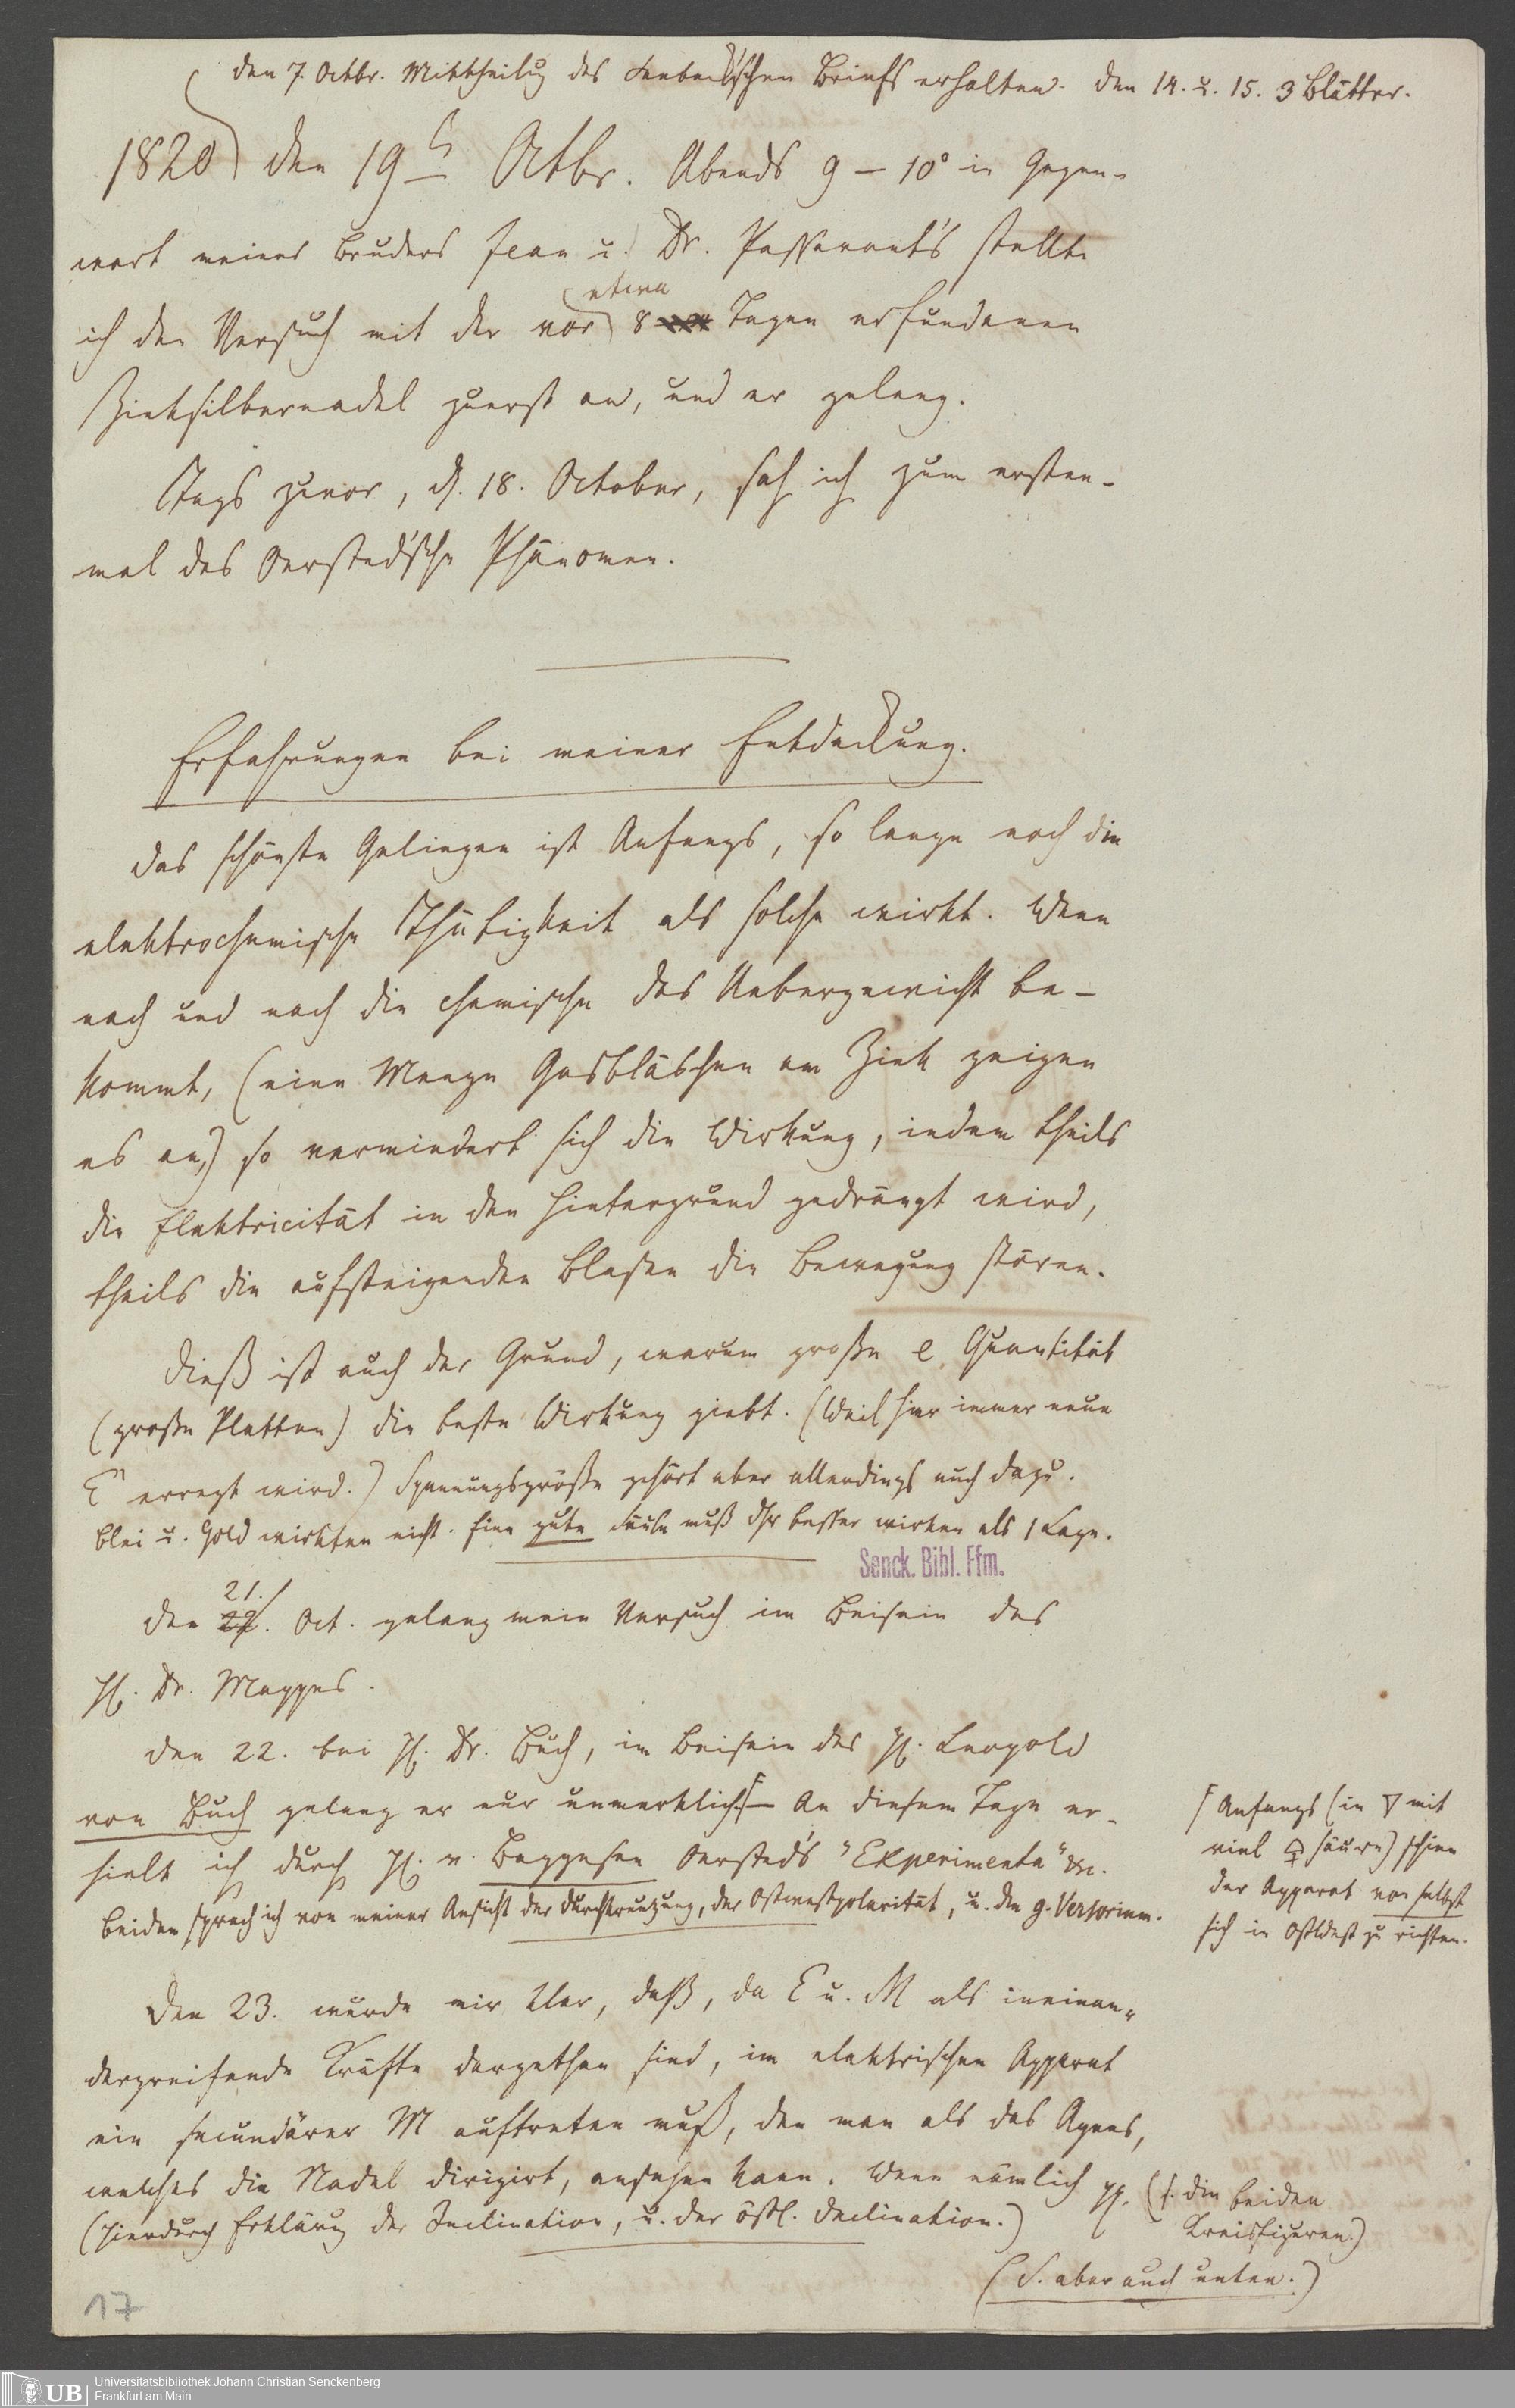 den 7. Octbr. Mittheilug des Seebeck'schen Briefs erhalten. den 14. u. 15. 3 Blätter.
1820 den 19t Octbr. Abends 9 – 10° in Gegen-
wart meines Bruders Jean u. Dr. Passavant's stellte
etwa
ich den Versuch mit der vor 8 Tagen erfundenen
Zinksilbernadel zuerst an, und er gelang.
Tags zuvor, d. 18. October, sah ich zum ersten-
mal das Oersted'sche Phänomen.
Erfahrungen bei meiner Entdeckung.
Das schönste Gelingen ist Anfangs, so lange noch die
elektrochemische Thätigkeit als solche wirkt. Wenn
nach und nach die chemische das Uebergewicht be-
kommt, (eine Menge Gasbläschen am Zink zeigen
es an,) so vermindert sich die Wirkung, indem theils
die Elektricität in den Hintergrund gedrängt wird,
theils die aufsteigenden Blasen die Bewegung stören.
Dieß ist auch der Grund, warum große e Quantität
(große Platten) die beste Wirkung giebt. (Weil hier immer neue
E erregt wird.) Spannungsgröße gehört aber allerdings auch dazu.
Blei u. Gold wirkten nicht. Eine gute Säule muß dhr besser wirken als 1 Lage.
Senck. Bibl. Ffm.
21.
Den 22. Oct. gelang mein Versuch im Beisein des
H. Dr. Mappes.
Den 22. bei H. Dr. Buch, im Beisein des H. Leopold
von Buch gelang er nur unmerklich. – An diesem Tage er-
hielt ich durch H. v. Baggesen Oersted's "Experimenta" &c.
Beiden sprach ich von meiner Ansicht der Durchkreutzung, der Ostwestpolarität, u. dem g. Versorium.
Anfangs (in ▽ mit
viel säure) schien
der Apparat von selbst
sich in OstWest zu richten.
Den 23. wurde mir klar, daß, da E u. M als ineinan-
dergreifende Kräfte dargethan sind, im elektrischen Apparat
ein secundärer M auftreten muß, den man als das Agens,
welches die Nadel dirigirt, ansehen kann. Wenn nämlich pp. (s. die beiden
Kreisfiguren.)
(Hierdurch Erklärug der Inclination, u. der östl. Declination.)
(S. aber auch unten.)
17
UB Universitätsbibliothek Johann Christian Senckenberg
Frankfurt am Main